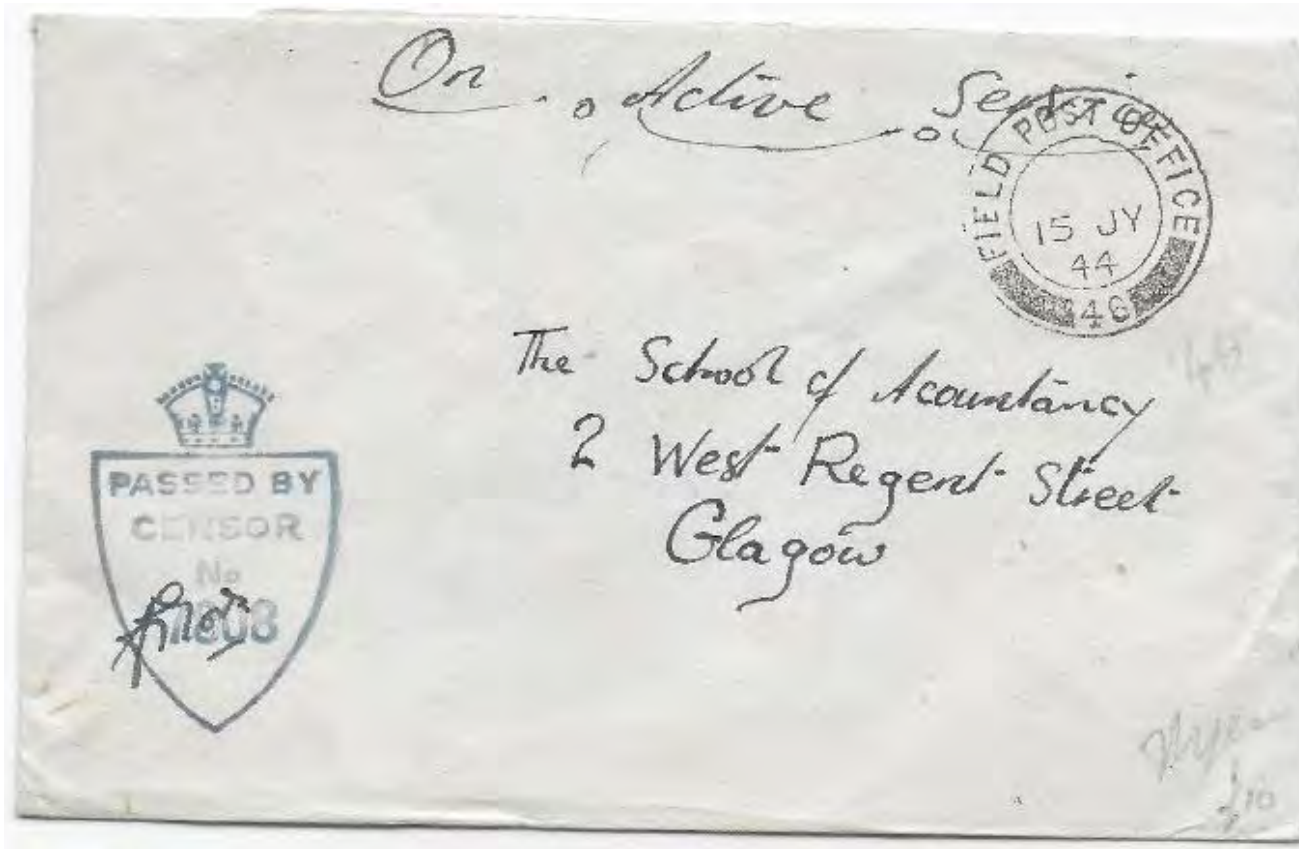 On Active Service
FIELD POST OFFICE
15 JY
44
The School of Acountancy
2 West Regent Street
Glagow
PASSED BY
CENSOR
No
£10